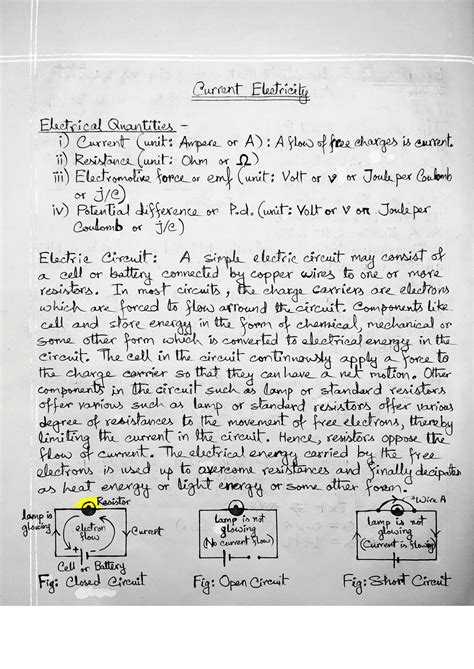 Current Electricity
Electrical Quantities -
i) Current (unit: Ampere or A): A flow of free charges is current.
ii) Resistance (unit: Ohm or Ω)
iii) Electromotive force or emf (unit: Volt or v or Joule per Coulomb
or j/c)
iv) Potential difference or P.d. (unit: Volt or v or Joule per
Coulomb or j/c)
Electric Circuit: A simple electric circuit may consist of
a cell or battery connected by copper wires to one or more
resistors. In most circuits, the charge carriers are electrons
which are forced to flow arround the circuit. Components like
cell and store energy in the form of chemical, mechanical or
some other form which is converted to electrical energy in the
circuit. The cell in the circuit continuously apply a force to
the charge carrier so that they can have a net motion. Other
components in the circuit such as lamp or standard resistors
offer various such as lamp or standard resistors offer various
degree of resistances to the movement of free electrons, thereby
limiting the current in the circuit. Hence, resistors oppose the
flow of current. The electrical energy carried by the free
electrons is used up to overcome resistances and finally decipates
as heat energy or light energy or some other form.
Resistor
lamp is
glowing
electron
flow
Current
+
Cell or Battery
Fig: Closed Circuit
Lamp is not
glowing
(No current flow)
Fig: Open Circuit
Wire A
Lamp is not
glowing
(Current is flowing)
Fig: Short Circuit